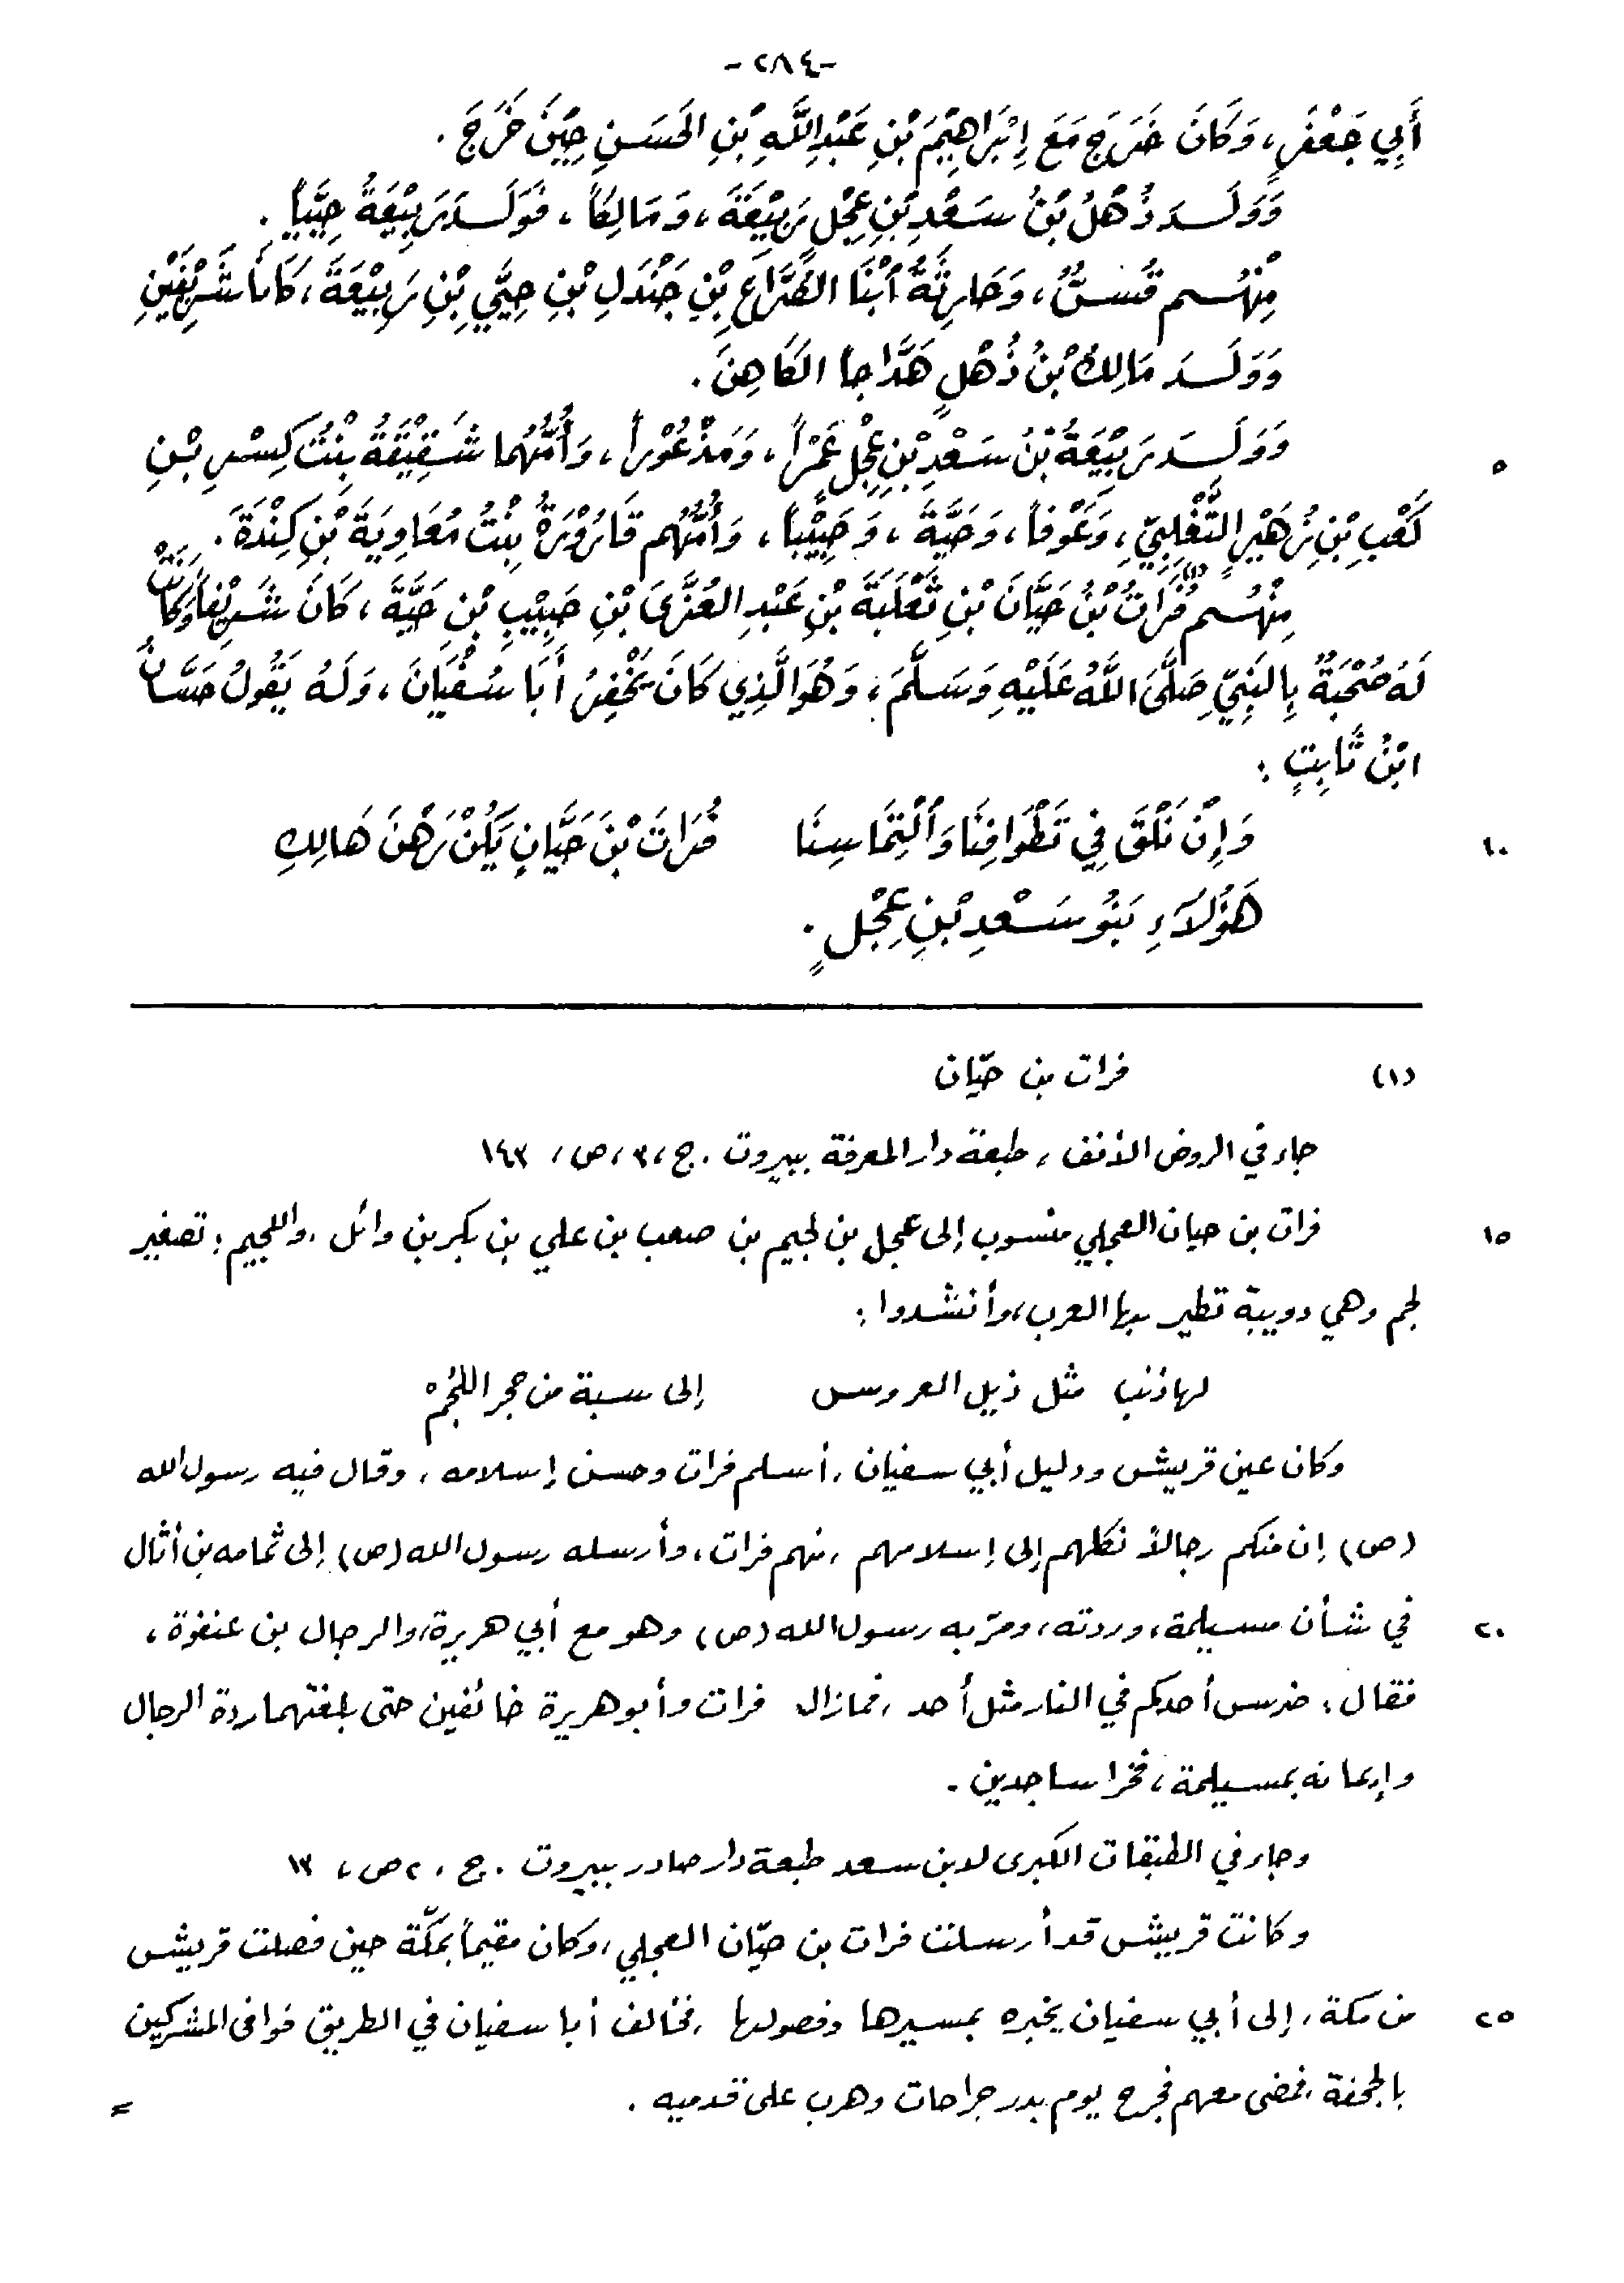 -٢٨٤-
أَبِي جَعْفَرٍ، وَكَانَ خَرَجَ مَعَ إِبْرَاهِيْمَ بْنِ عَبْدِ اللَّهِ بْنِ الحَسَنِ حِيْنَ خَرَجَ .
وَوَلَدَ ذُهْلُ بْنُ سَعْدِ بْنِ عِجْلٍ رَبِيْعَةَ، وَمَالِكاً، فَوَلَدَ رَبِيْعَةُ حِيَّياً .
مِنْهُم قَسٌّ، وَحَارِثَةُ أبْنَا الصَّرَّاعِ بْنِ جَنْدَلِ بْنِ حِيَّيِ بْنِ رَبِيْعَةَ، كَانَا شَرِيْفَيْنِ
وَوَلَدَ مَالِكُ بْنُ ذُهْلٍ هَدَّاجاً الكَاهِنَ .
وَوَلَدَ رَبِيْعَةُ بْنُ سَعْدِ بْنِ عِجْلٍ عَمْراً، وَمَذْعُوْراً، وَأُمُّهُما شَقِيْقَةُ بِنْتُ كِسْرِ بْنِ
٥
كَعْبِ بْنِ زُهَيْرٍ التَّغْلِبِيِّ، وَعَوْفاً، وَحَيَّةَ، وَحَبِيْباً، وَأُمُّهُم قَارُوْرَةُ بِنْتُ مُعَاوِيَةَ بْنِ كِنْدَةَ .
مِنْهُم فُرَاتُ (١) بْنُ حَيَّانَ بْنِ ثَعْلَبَةَ بْنِ عَبْدِ العُزَّى بْنِ حَبِيْبِ بْنِ حَيَّةَ، كَانَ شَرِيْفاً وَكَانَتْ
لَهُ صُحْبَةٌ بِالنَبِيِّ صَلَّى اللَّهُ عَلَيْهِ وَسَلَّمَ، وَهُوَ الَّذِي كَانَ يَخْفِرُ أَبَا سُفْيَانَ، وَلَهُ يَقُولُ حَسَّانُ
ابْنُ ثَابِتٍ :
وَإِنْ نَلْقَ فِي تَطْوَافِنَا وَألْتِمَاسِنَا فُرَاتَ بْنَ حَيَّانٍ يَكُنْ رَهْنَ هَالِكِ
١٠
هَؤُلَاَءِ بَنُو سَعْدِ بْنِ عِجْلٍ .
(١) فرات بن حيّان
جاء في الروض الأنف، طبعة دار المعرفة ببيروت . ج، ٣، ص، ١٤٣
فرات بن حيان العجلي منسوب إلى عجل بن لجيم بن صعب بن علي بن بكر بن وائل . واللجيم : تصغير
١٥
لجم وهي دويبة تطير بها العرب، وأنشدوا :
لها ذنب مثل ذيل العروس إلى سبة من جحر اللجُم
وكان عين قريش ودليل أبي سفيان . أسلم فرات وحسن إسلامه، وقال فيه رسول الله
(ص) إن منكم رجالاً نكلهم إلى إسلامهم، منهم فرات، وأرسله رسول الله (ص) إلى ثمامه بن أثال
في شأن مسيلمة، وردته، ومرّ به رسول الله (ص) وهو مع أبي هريرة، والرجال بن عنفوة،
٢٠
فقال : ضرس أحدكم في النار مثل أحد، فما زال فرات وأبو هريرة خائفين حتى بلغتهما ردة الرجال
وإيمانه بمسيلمة، فخرا ساجدين .
وجاء في الطبقات الكبرى لابن سعد طبعة دار صادر ببيروت . ج، ٢ ص، ١٣
وكانت قريش قد أرسلت فرات بن حيّان العجلي، وكان مقيماً بمكّة حين فصلت قريش
من مكة، إلى أبي سفيان يخبره بمسيرها وفصولها، فخالف أبا سفيان في الطريق فوافى المشركين
٢٥
بالجحفة، فمضى معهم فجرح يوم بدر جراحات وهرب على قدميه .
=